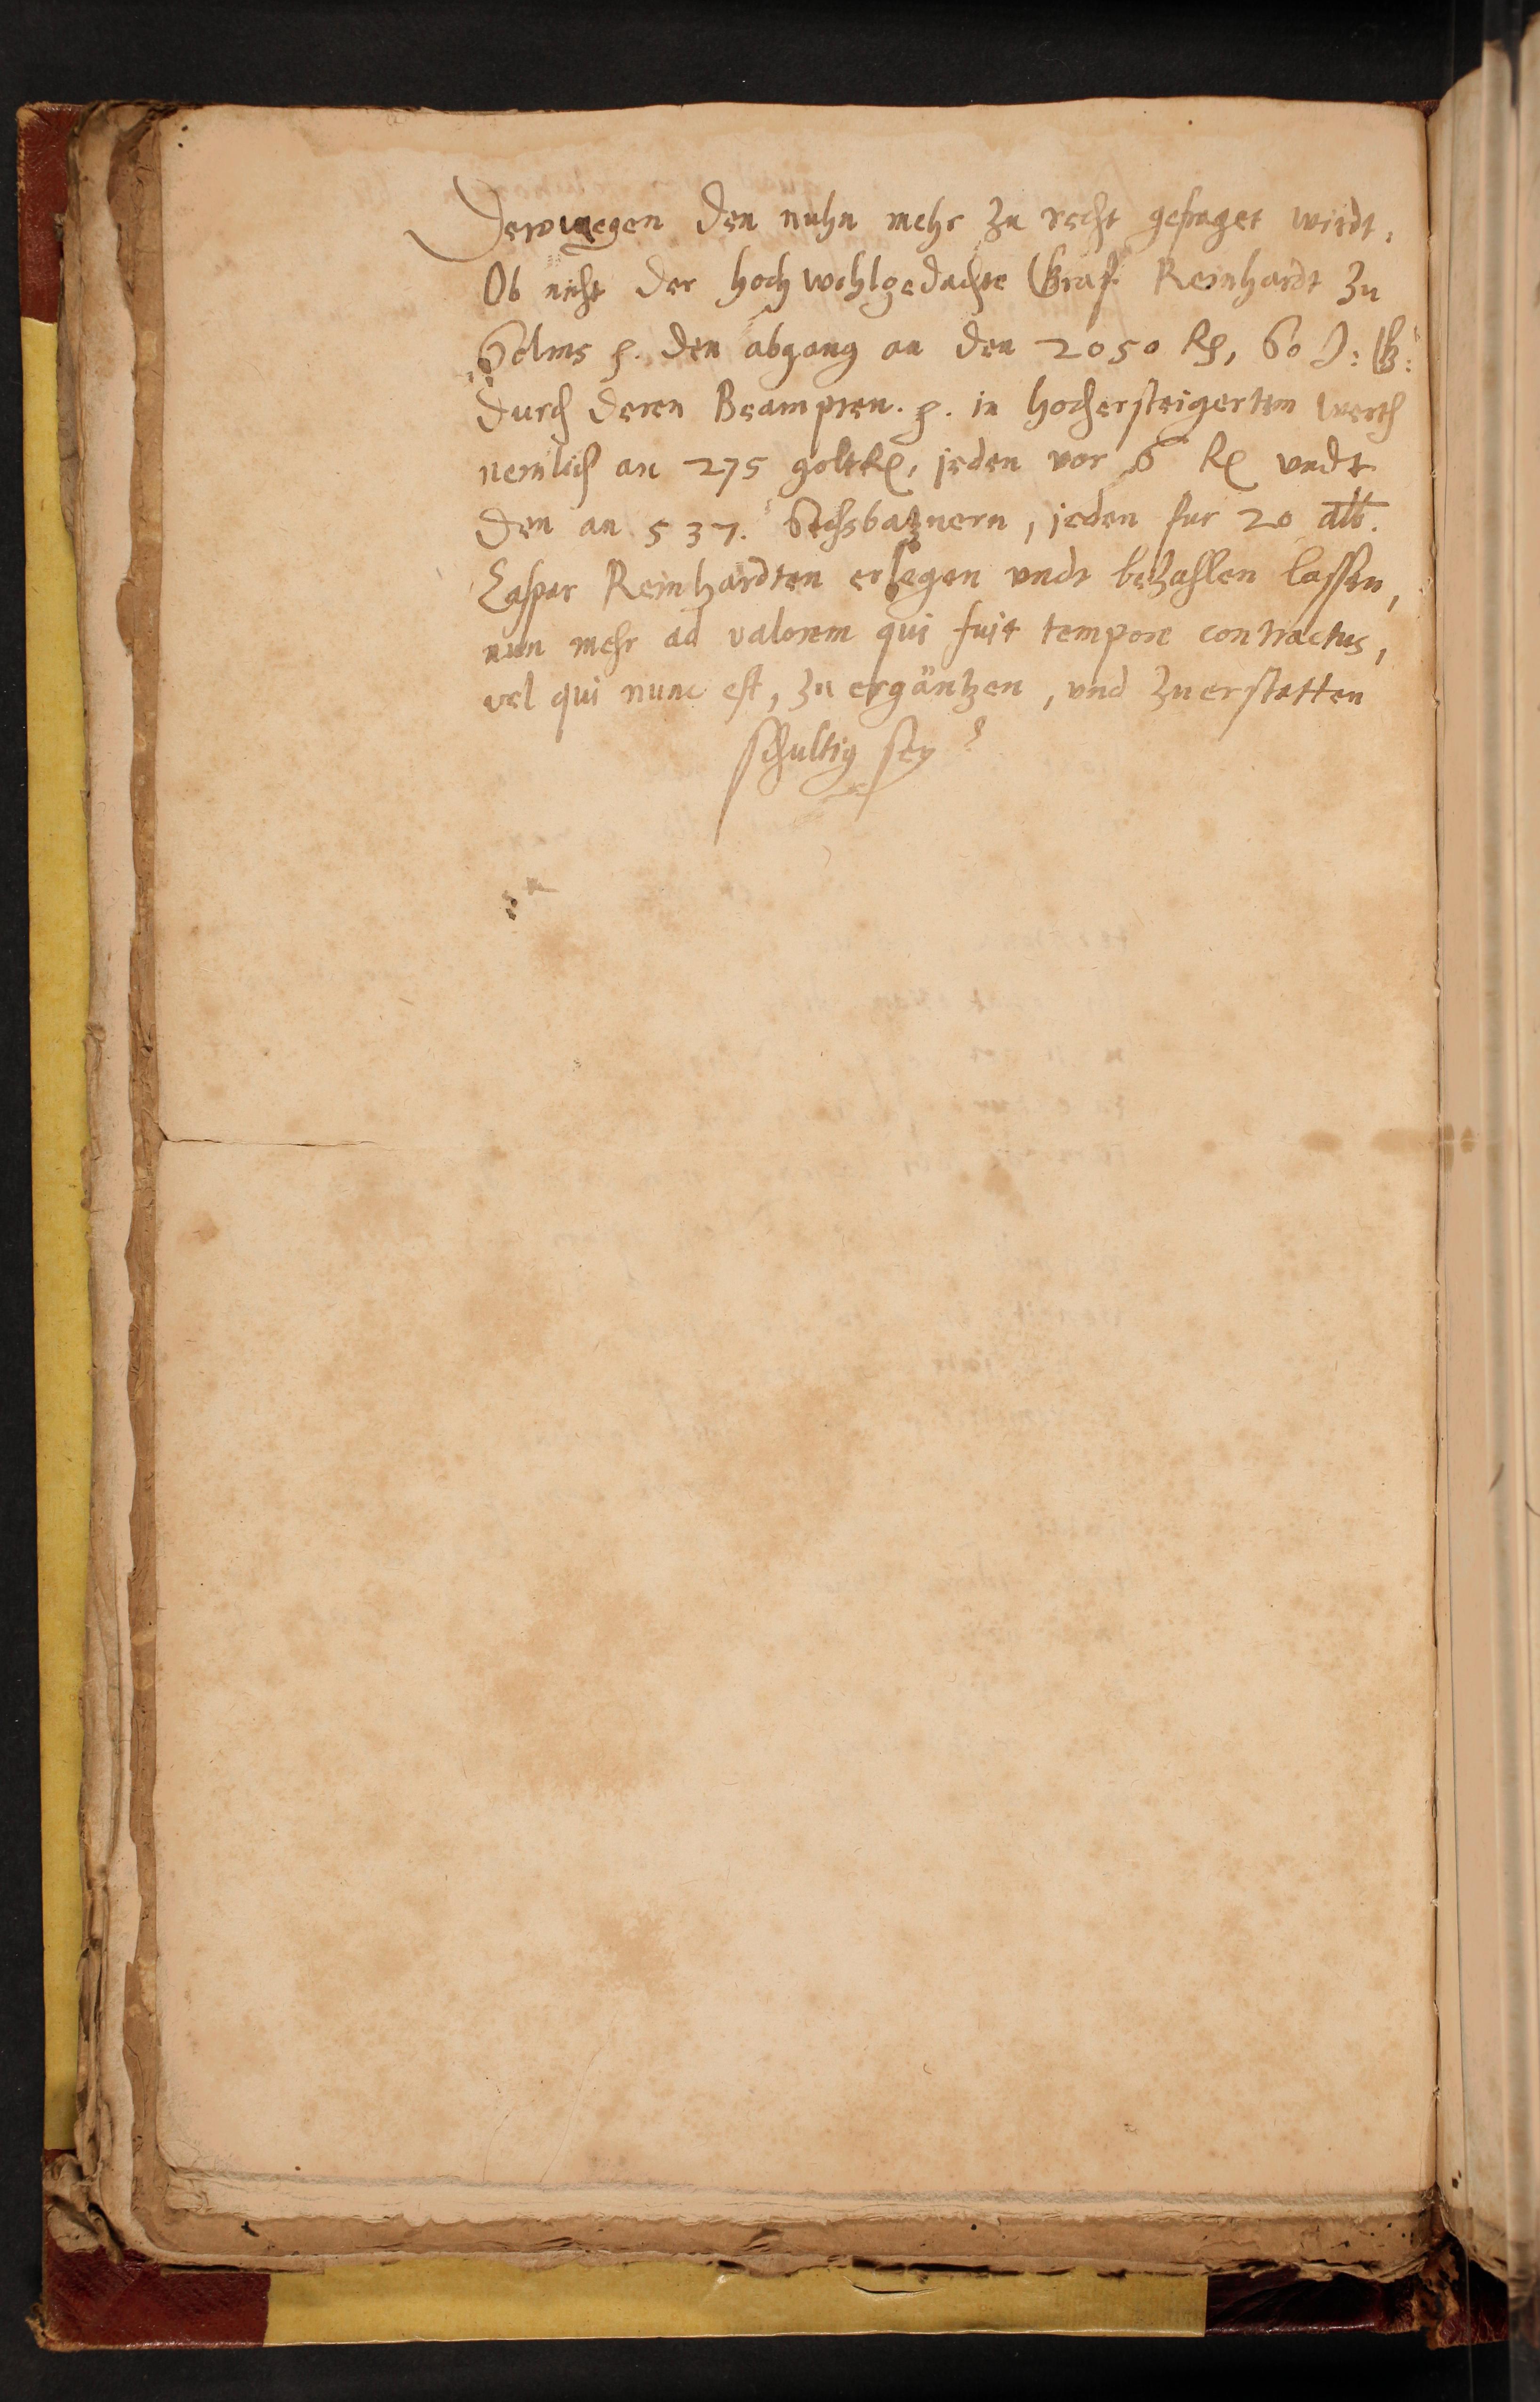 Derowegen den nuhn mehr zu recht gefraget wirdt,
Ob nicht der hoch wohlgedachte Graf Reinhardt zu
Solms p. den abgang an den 2050 Rf, So J: G:
durch deren Beampten. p. in hochersteigertem werth
nemlich an 275 goltRf, jeden vor 6 Rf vndt
den an 537. Sechsbatznern, jeden fur 20 alb.
Caspar Reinhardten erlegen vndt bezahlen lassen,
nun mehr ad valorem qui fuit tempore contractus,
vel qui nunc est, zu ergäntzen, vnd zuerstatten
schultig sey?